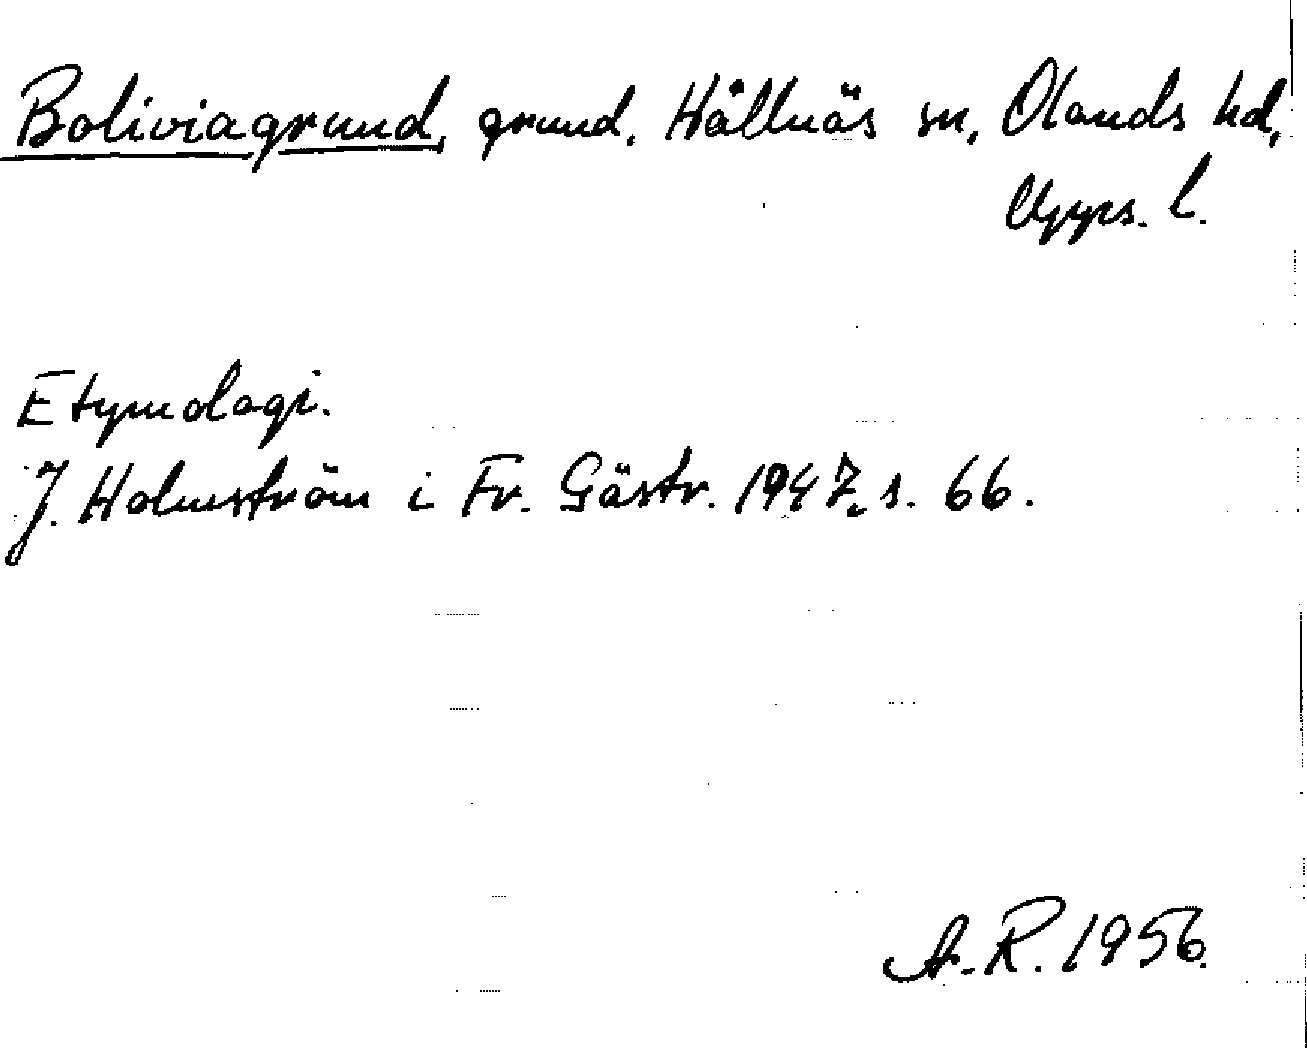 Boliviagrund, grund, Hållnäs sn, Olands hd,
Upps. l.
Etymologi.
J. Holmström i Fr. Gästr. 1947, s. 66.
A. R. 1956.